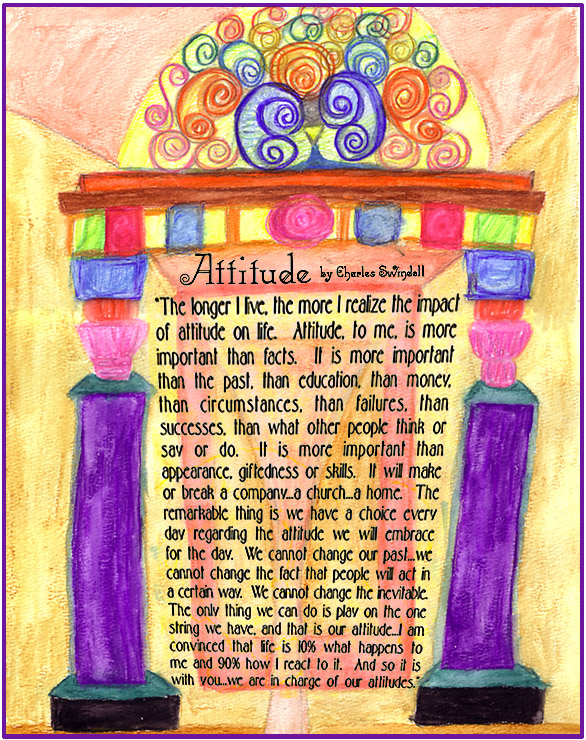 Attitude by Charles Swindoll
"The longer I live, the more I realize the impact
of attitude on life. Attitude, to me, is more
important than facts. It is more important
than the past, than education, than money,
than circumstances, than failures, than
successes, than what other people think or
say or do. It is more important than
appearance, giftedness or skills. It will make
or break a company...a church...a home. The
remarkable thing is we have a choice every
day regarding the attitude we will embrace
for the day. We cannot change our past...we
cannot change the fact that people will act in
a certain way. We cannot change the inevitable.
The only thing we can do is play on the one
string we have, and that is our attitude...I am
convinced that life is 10% what happens to
me and 90% how I react to it. And so it is
with you...we are in charge of our attitudes."